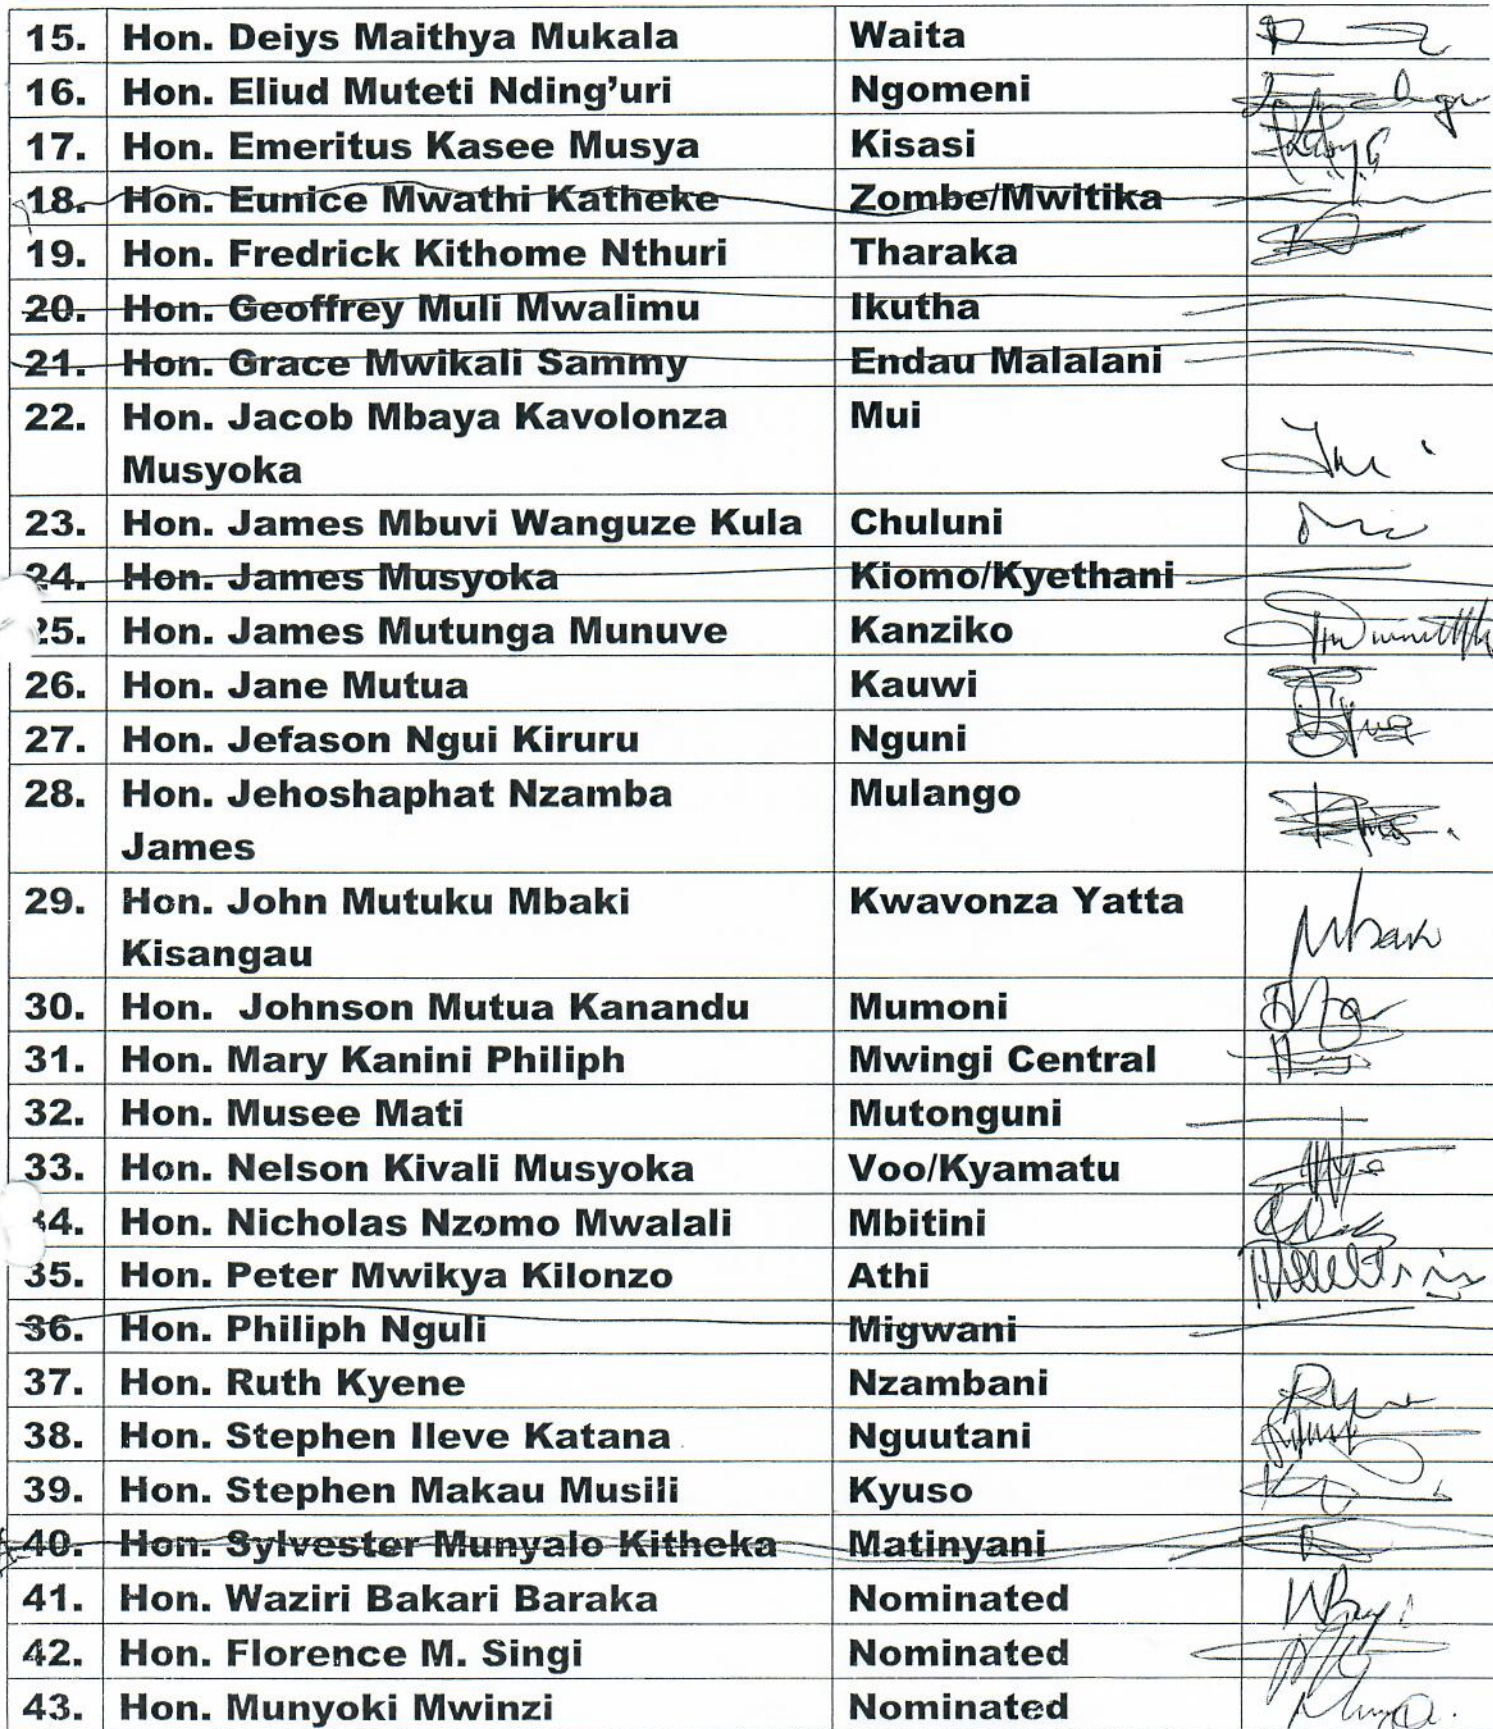 15. Hon. Deiys Maithya Mukala Waita
16. Hon. Eliud Muteti Nding’uri Ngomeni
17. Hon. Emeritus Kasee Musya Kisasi
18. Hon. Eunice Mwathi Katheke Zombe/Mwitika
19. Hon. Fredrick Kithome Nthuri Tharaka
20. Hon. Geoffrey Muli Mwalimu Ikutha
21. Hon. Grace Mwikali Sammy Endau Malalani
22. Hon. Jacob Mbaya Kavolonza Mui
Musyoka
23. Hon. James Mbuvi Wanguze Kula Chuluni
24. Hon. James Musyoka Kiomo/Kyethani
25. Hon. James Mutunga Munuve Kanziko
26. Hon. Jane Mutua Kauwi
27. Hon. Jefason Ngui Kiruru Nguni
28. Hon. Jehoshaphat Nzamba Mulango
James
29. Hon. John Mutuku Mbaki Kwavonza Yatta
Kisangau
30. Hon. Johnson Mutua Kanandu Mumoni
31. Hon. Mary Kanini Philiph Mwingi Central
32. Hon. Musee Mati Mutonguni
33. Hon. Nelson Kivali Musyoka Voo/Kyamatu
34. Hon. Nicholas Nzomo Mwalali Mbitini
35. Hon. Peter Mwikya Kilonzo Athi
36. Hon. Philiph Nguli Migwani
37. Hon. Ruth Kyene Nzambani
38. Hon. Stephen Ileve Katana Nguutani
39. Hon. Stephen Makau Musili Kyuso
40. Hon. Sylvester Munyalo Kitheka Matinyani
41. Hon. Waziri Bakari Baraka Nominated
42. Hon. Florence M. Singi Nominated
43. Hon. Munyoki Mwinzi Nominated